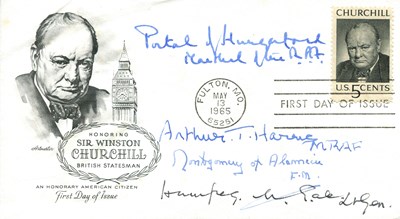 Portal of Hungerford
Marshal of the R.A.F.
CHURCHILL
U.S. 5 CENTS
FULTON, MO.
MAY
13
1965
65251
FIRST DAY OF ISSUE
HONORING
SIR WINSTON
CHURCHILL
BRITISH STATESMAN
AN HONORARY AMERICAN CITIZEN
First Day of Issue
Arthur T. Harris
MRAF
Montgomery of Alamein
F.M.
Lt Gen.